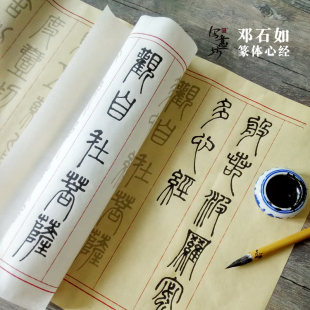 邓石如
篆体心经
般若波羅密
多心經
觀自在菩薩
觀自在菩薩